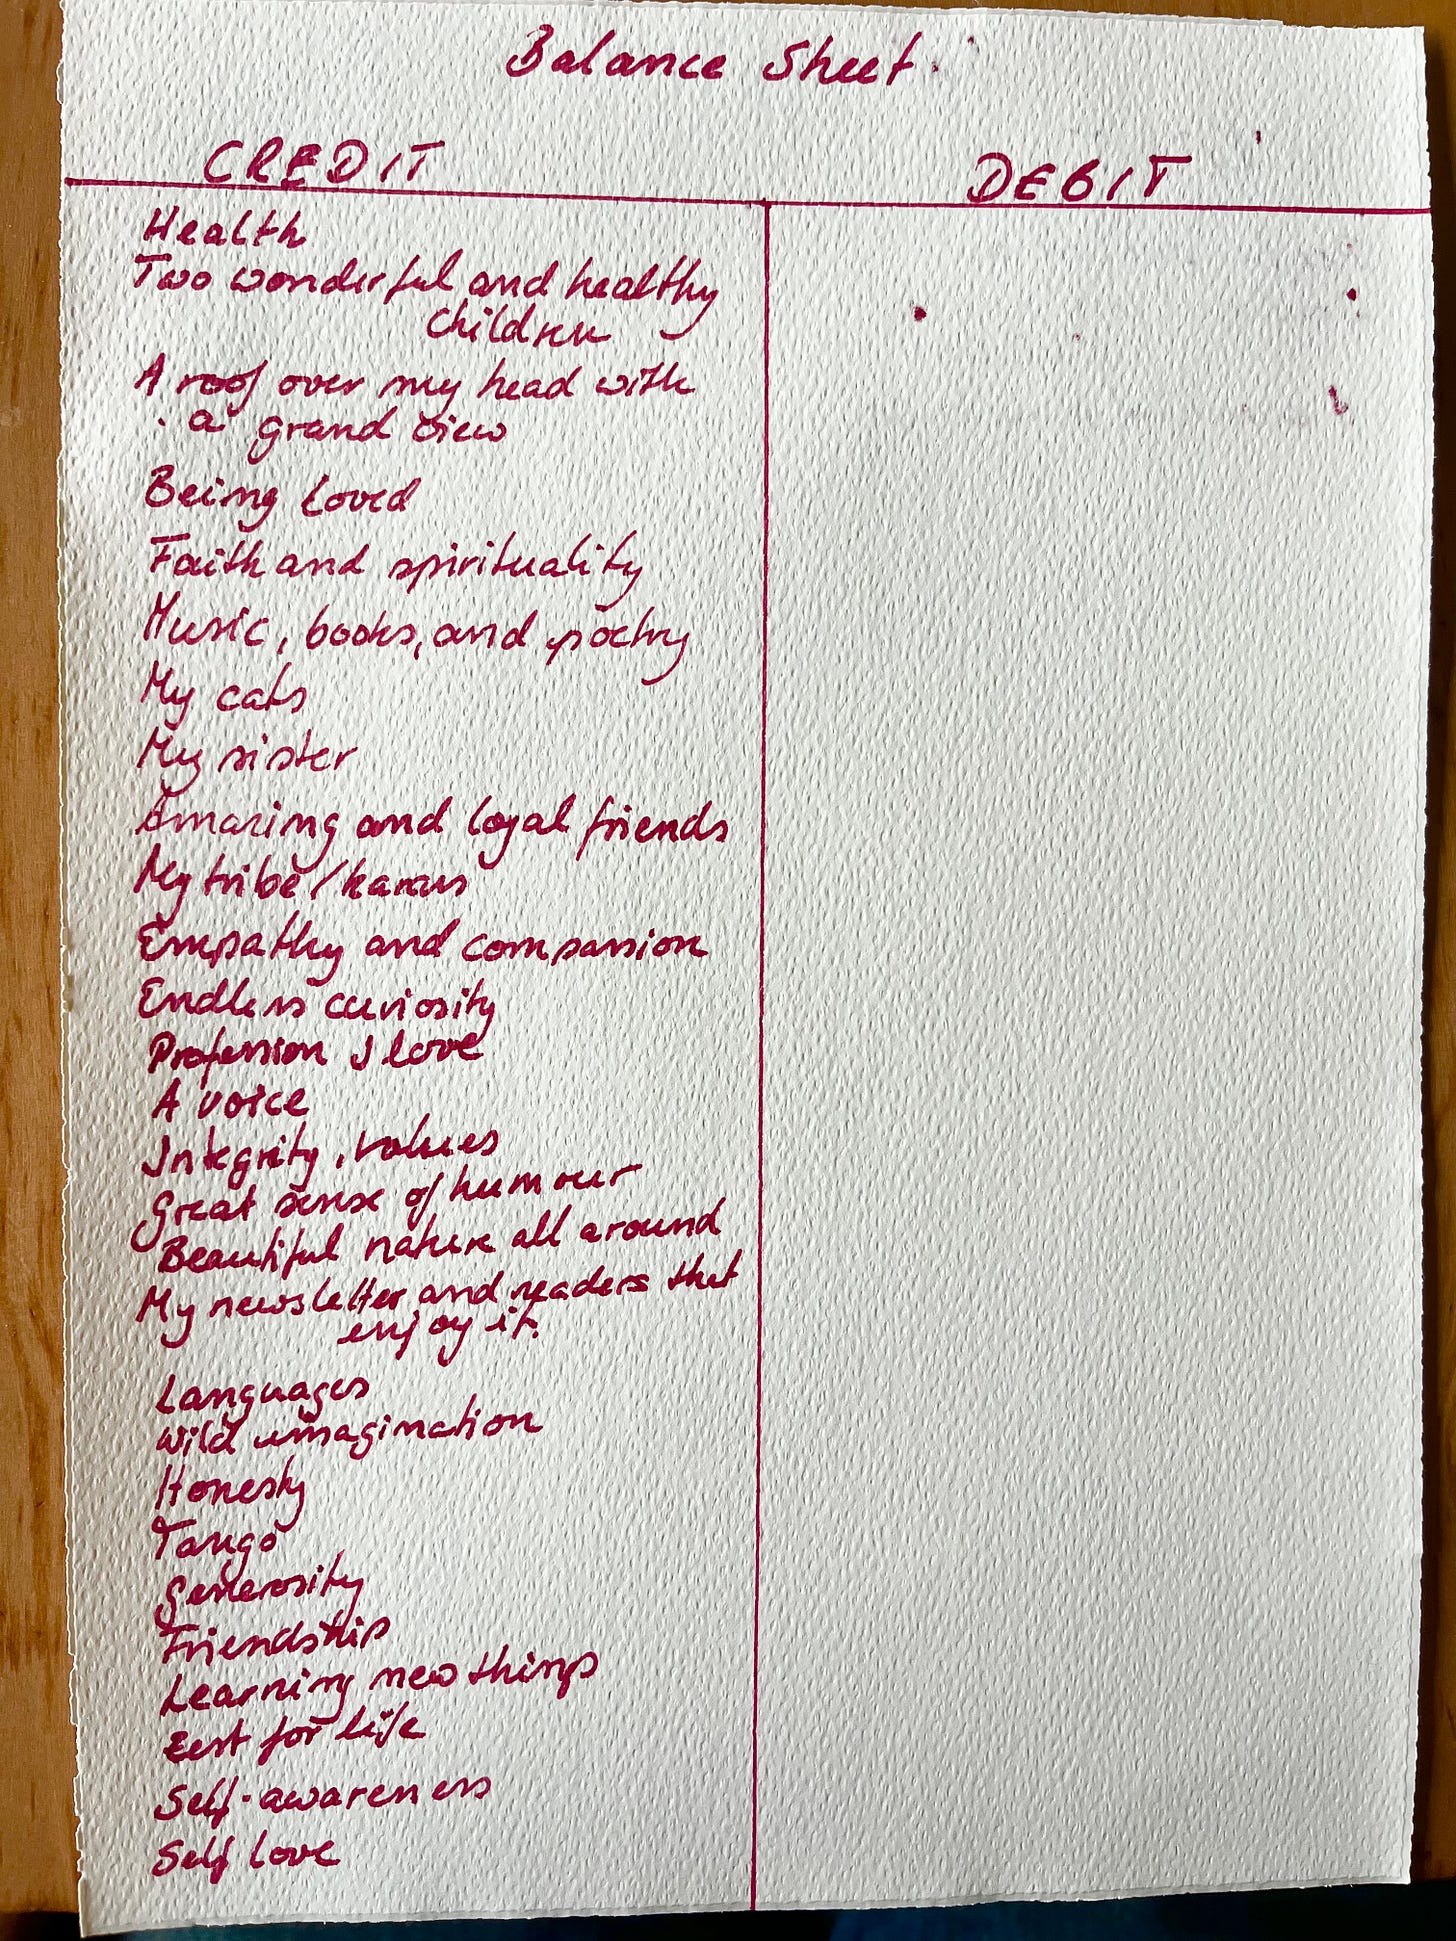 Balance Sheet.
CREDIT
DEBIT
Health
Two wonderful and healthy
children
A roof over my head with
a grand view
Being loved
Faith and spirituality
Music, books, and poetry
My cats
My sister
Amazing and loyal friends
My tribe/
Empathy and compassion
Endless curiosity
Profession I love
A voice
Integrity, values
Great sense of humour
Beautiful nature all around
My newsletter and readers that
enjoy it.
Languages
Wild imagination
Honesty
Tango
Generosity
Friendship
Learning new things
Zest for life
Self-awareness
Self love